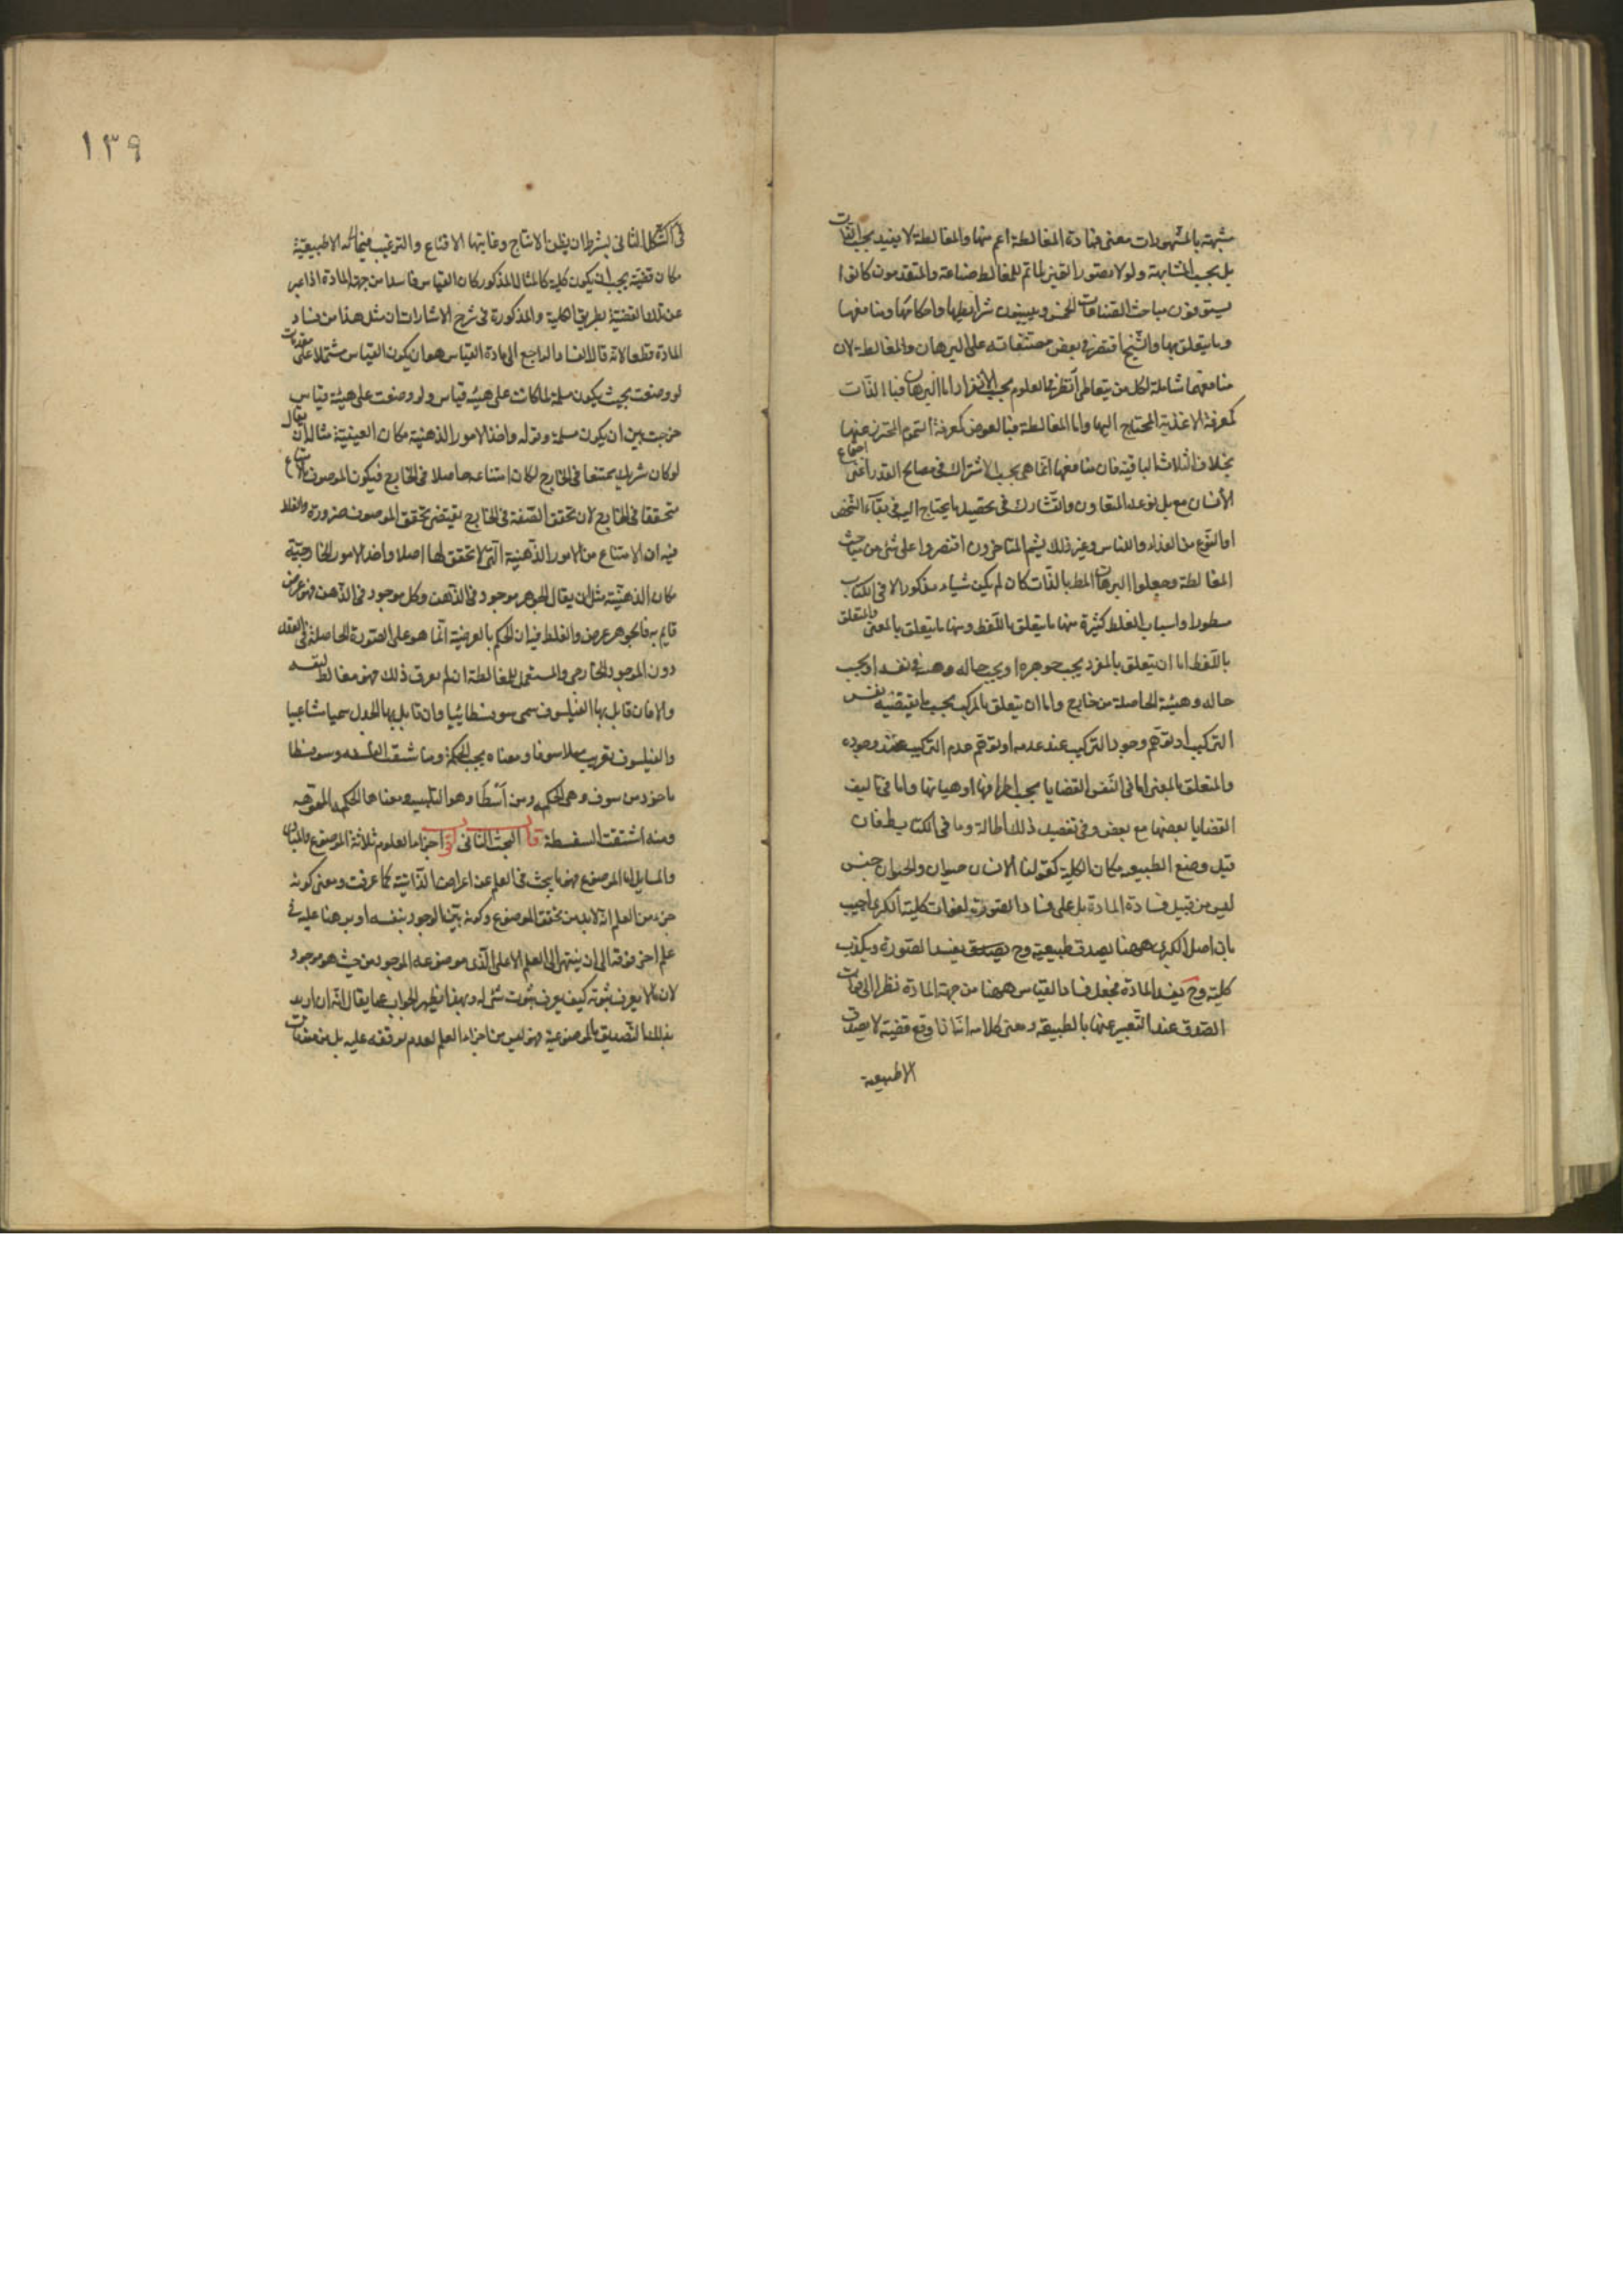 مشبهة بالمشهورات معنى فمادة المغالطة اعم منها والمغالطة لا يفيد بحسب الذات
بل بحسب المشابهة ولولا تصور التميز لما تم للمغالط صناعة والمتقدمون كانوا
يستوفون مباحث الصناعات الخمس ويبينون شرايطها واحكامها ومنافعها
وما يتعلق بها والشيخ اقتصر في بعض مصنفاته على البرهان والمغالطة لان
منافعهما شاملة لكل من يتعاطى النظر في العلوم بحسب الانفراد اما البرهان فبالذات
كمعرفة الاغذية المحتاج اليها واما المغالطة فبالعرض كمعرفة السموم المحترز عنها
بخلاف الثلاث الباقية فان منافعها انما هي بحسب الاشتراك في مصالح المدن اعنى اجتماع
الانسان مع بنى نوعه للتعاون والتشارك في تحصيل ما يحتاج اليه في بقاء الشخص
او النوع من الغذاء واللباس وغير ذلك ثم المتاخرون اقتصروا على شئ من مباحث
المغالطة وجعلوا البرهان المط بالذات كان لم يكن شياء مذكورا الا في الكتاب
مسطورا واسباب الغلط كثيرة منها ما يتعلق باللفظ ومنها ما يتعلق بالمعنى والمتعلق
باللفظ اما ان يتعلق بالمفرد بحسب جوهره او بحسب حاله وهيئته في نفسه او بحسب
حاله وهيئته الحاصلة من خارج واما ان يتعلق بالمركب بحسب ما يقتضيه نفس
التركيب او توهم وجود التركيب عند عدمه او توهم عدم التركيب عند وجوده
والمتعلق بالمعنى اما في انفس القضايا بحسب اطرافها او هيئاتها واما في تاليف
القضايا بعضها مع بعض وفي تفصيل ذلك اطالة وما في الكتاب
قيل وضع الطبيعية مكان الكلية كقولنا الانسان حيوان والحيوان جنس
ليس من قبيل فساد المادة بل على فساد الصورة لفوات كلية الكبرى اجيب
بان اصل الكبرى ههنا يصدق طبيعية وح يفسد الصورة ويكذب
كلية وح يفسد المادة فجعل فساد القياس ههنا من جهة المادة نظرا الى فوات
الصدق عند التعبير عنها بالطبيعة ومعنى كلامه اننا اذا وضع قضية لا يصدق
الا طبيعية
١٣٩
في الشكل الثاني بشرط ان يظن الانتاج وغايتها الاقناع والترغيب الا طبيعية
مكان قضية يجب ان يكون كلية كالمثال المذكور كان القياس فاسدا من جهة المادة اذا عبر
عن تلك القضية بطريق الكلية والمذكورة في شرح الاشارات ان مثل هذا من فساد
المادة قطعا لانه قال الفساد الراجع الى مادة القياس هو ان يكون القياس مشتملا على مقدمات
لو وضعت بحيث يكون مسلمة لما كانت على هيئة قياس ولو وضعت على هيئة قياس
خرجت من ان يكون مسلمة وقوله واخذ الامور الذهنية مكان العينية مثاله ان يقال
لو كان شريك ممتنعا في الخارج لكان امتناعه حاصلا في الخارج فيكون الموصوف بالامتناع
متحققا في الخارج لان تحقق الصفة في الخارج يقتضى تحقق الموصوف ضرورة والغلط
فيه ان الامتناع من الامور الذهنية التي لا تحقق لها اصلا واخذ الامور الخارجية
مكان الذهنية مثل ان يقال الجوهر موجود في الذهن وكل موجود في الذهن فهو عرض
قايم به فالجوهر عرض والغلط فيه ان الحكم بالعرضية انما هو على الصورة الحاصلة في العقل
دون الموجود الخارجي والمستعمل للمغالطة ان لم يعرف ذلك فهو مغالط لنفسه
والا فان قابل بها الفيلسوف سمى سوفسطائيا وان قابل بها الجدلى سمى مشاغبيا
والفيلسوف تعريب فيلاسوفا ومعناه محب الحكمة ومنه اشتقت الفلسفة وسوفسطا
ماخوذ من سوف وهي الحكمة ومن اسطا وهو التلبيس ومعناها الحكمة المموهة
ومنه اشتقت السفسطة قال البحث الثاني اقول اجزاء العلوم ثلاثة الموضوع والمبادى
والمسايل اما الموضوع فهو ما يبحث في العلم عن اعراضه الذاتية كما عرفت ومعنى كونه
جزء من العلم انه لابد من تحقق الموضوع وكونه بين الوجود بنفسه او مبرهنا عليه في
علم اخر فوقه الى ان ينتهى الى العلم الاعلى الذى موضوعه الموجود من حيث هو موجود
لان ما لا يعرف ثبوته كيف يعرف ثبوت شئ له وبهذا يظهر الجواب عما يقال انه ان اريد
بذلك التصديق بالموضوعية فهو ليس من اجزاء العلم لعدم توقفه عليه بل من مقدمات